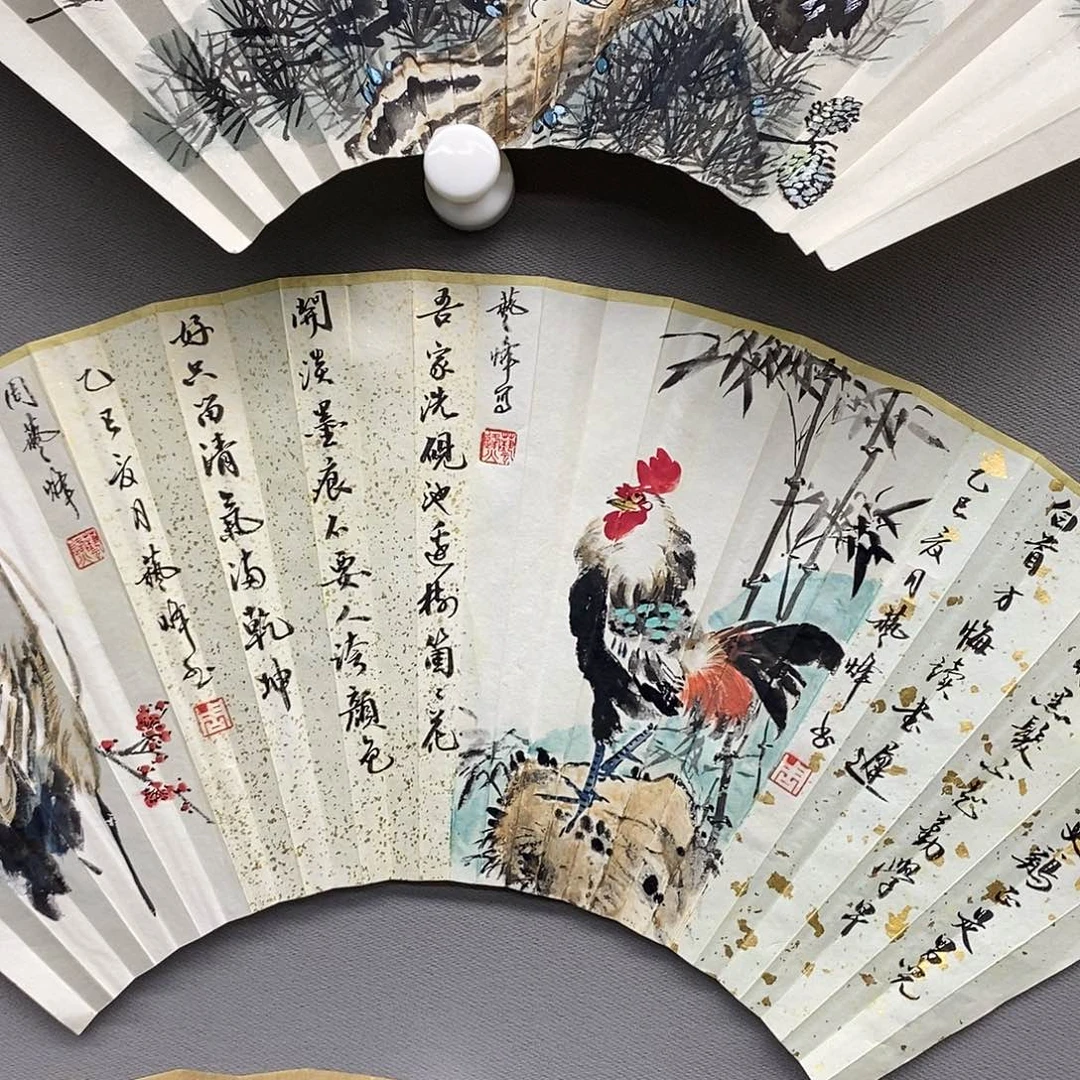 鷄正是男兒
黑髮不知勤學早
白首方悔讀書遲
乙巳夏月藝峰書
藝峰寫
吾家洗硯池邊樹箇々花
開淡墨痕不要人誇顏色
好只留清氣滿乾坤
乙巳夏月藝峰書
周藝峰